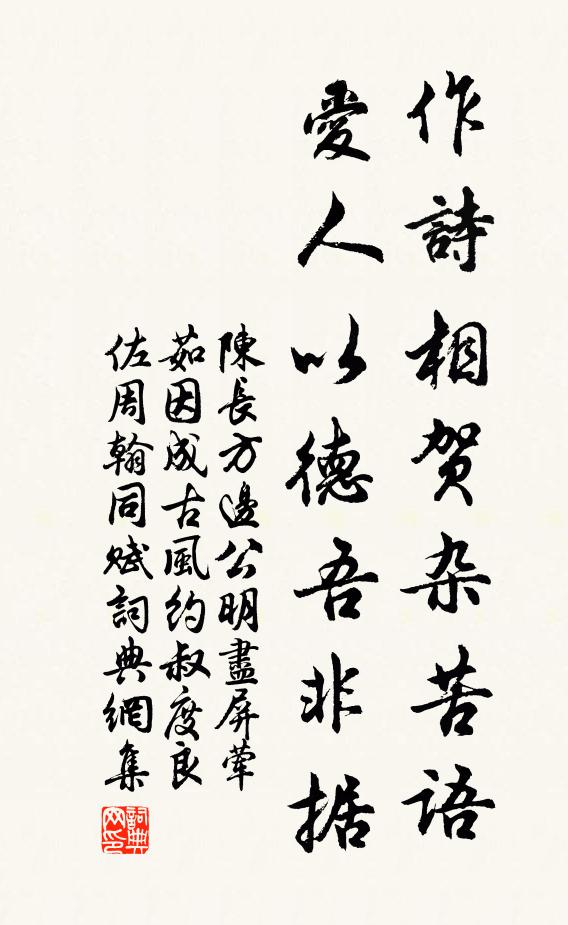 作詩相賀杂苦語
愛人以德吾非据
陳長方邊公明盡屏葷
茹因成古風約叔度良
佐周翰同賦詞典網集
詞典网印